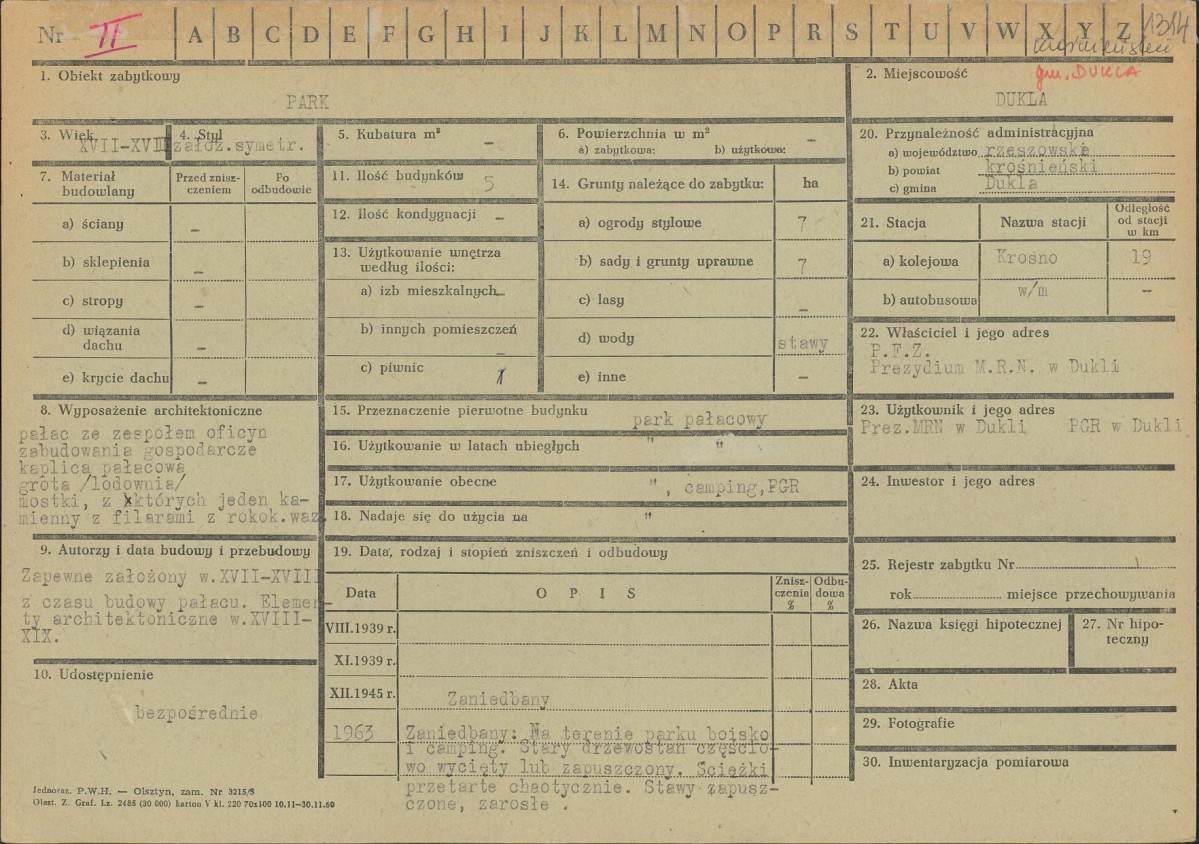 Nr II A B C D E F G H I J K L M N O P R S T U V W X Y Z 1314
gm. DUKLA
1. Obiekt zabytkowy
PARK
2. Miejscowość
DUKLA
3. Wiek
XVII-XVIII
4. Styl
założ.symetr.
5. Kubatura m³
–
6. Powierzchnia w m²
a) zabytkowa: b) użytkowa:
–
7. Materiał budowlany
Przed zniszczeniem
Po odbudowie
a) ściany –
b) sklepienia –
c) stropy –
d) wiązania dachu –
e) krycie dachu –
11. Ilość budynków 5
12. Ilość kondygnacji –
13. Użytkowanie wnętrza
według ilości:
a) izb mieszkalnych –
b) innych pomieszczeń –
c) piwnic 1
14. Grunty należące do zabytku: ha
a) ogrody stylowe 7
b) sady i grunty uprawne 7
c) lasy –
d) wody stawy
e) inne –
20. Przynależność administracyjna
a) województwo rzeszowskie
b) powiat krośnieński
c) gmina Dukla
21. Stacja
Nazwa stacji
Odległość
od stacji
w km
a) kolejowa Krosno 19
b) autobusowa w/m –
22. Właściciel i jego adres
P.F.Z.
Prezydium M.R.N. w Dukli
8. Wyposażenie architektoniczne
pałac ze zespołem oficyn
zabudowania gospodarcze
kaplica pałacowa
grota /lodownia/
mostki, z których jeden ka-
mienny z filarami z rokok.waz.
15. Przeznaczenie pierwotne budynku park pałacowy
16. Użytkowanie w latach ubiegłych " "
17. Użytkowanie obecne ", camping,PGR
18. Nadaje się do użycia na "
23. Użytkownik i jego adres
Prez.MRN w Dukli PGR w Dukli
24. Inwestor i jego adres
9. Autorzy i data budowy i przebudowy
Zapewne założony w.XVII-XVIII
z czasu budowy pałacu. Elemen-
ty architektoniczne w.XVIII-
XIX.
10. Udostępnienie
bezpośrednie
19. Data, rodzaj i stopień zniszczeń i odbudowy
Data
O P I S
Zniszczenia %
Odbudowa %
VIII.1939 r.
XI.1939 r.
XII.1945 r. Zaniedbany
1963 Zaniedbany: Na terenie parku boisko
i camping. Stary drzewostan częścio-
wo wycięty lub zapuszczony. Ścieżki
przetarte chaotycznie. Stawy zapusz-
czone, zarosłe .
25. Rejestr zabytku Nr
rok miejsce przechowywania
26. Nazwa księgi hipotecznej
27. Nr hipo-
teczny
28. Akta
29. Fotografie
30. Inwentaryzacja pomiarowa
Jednoraz. P.W.H. — Olsztyn, zam. Nr 3215/S
Olszt. Z. Graf. Lz. 2485 (30 000) karton V kl. 220 70x100 10.11—30.11.60